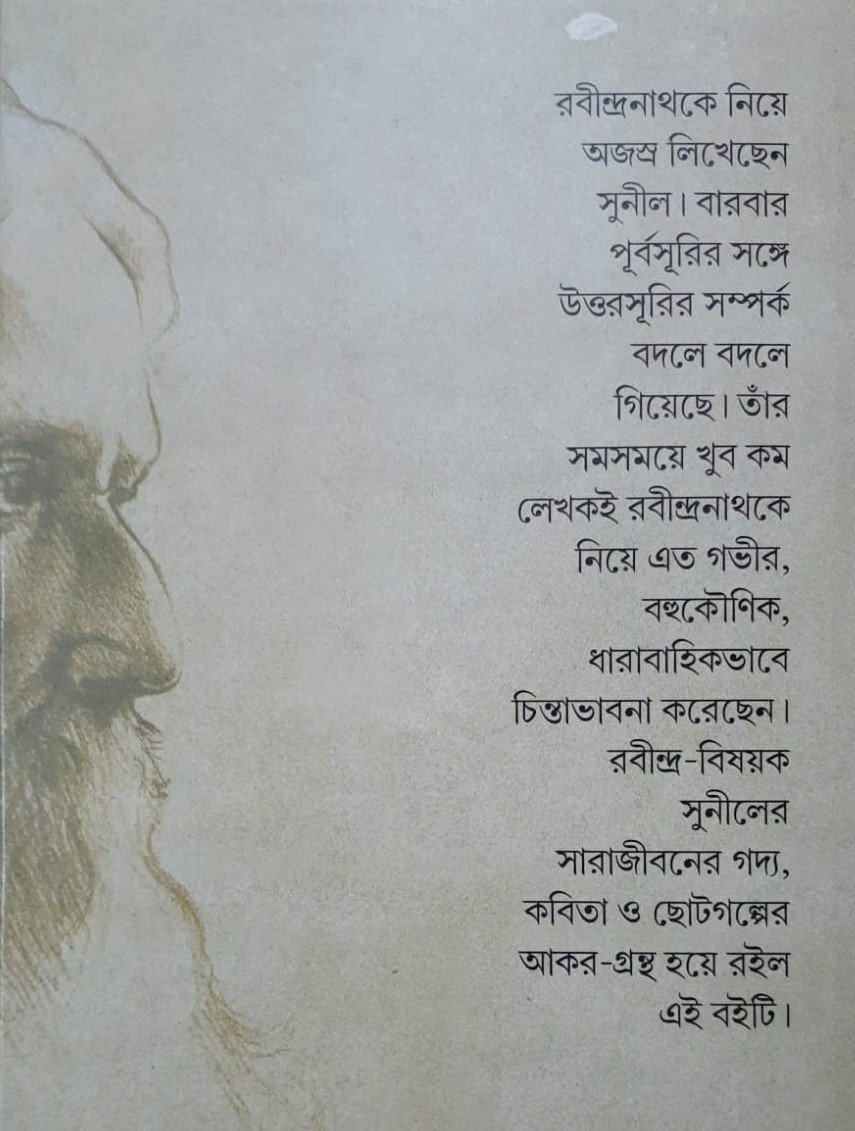 রবীন্দ্রনাথকে নিয়ে
অজস্র লিখেছেন
সুনীল। বারবার
পূর্বসূরির সঙ্গে
উত্তরসূরির সম্পর্ক
বদলে বদলে
গিয়েছে। তাঁর
সমসময়ে খুব কম
লেখকই রবীন্দ্রনাথকে
নিয়ে এত গভীর,
বহুকৌণিক,
ধারাবাহিকভাবে
চিন্তাভাবনা করেছেন।
রবীন্দ্র-বিষয়ক
সুনীলের
সারাজীবনের গদ্য,
কবিতা ও ছোটগল্পের
আকর-গ্রন্থ হয়ে রইল
এই বইটি।